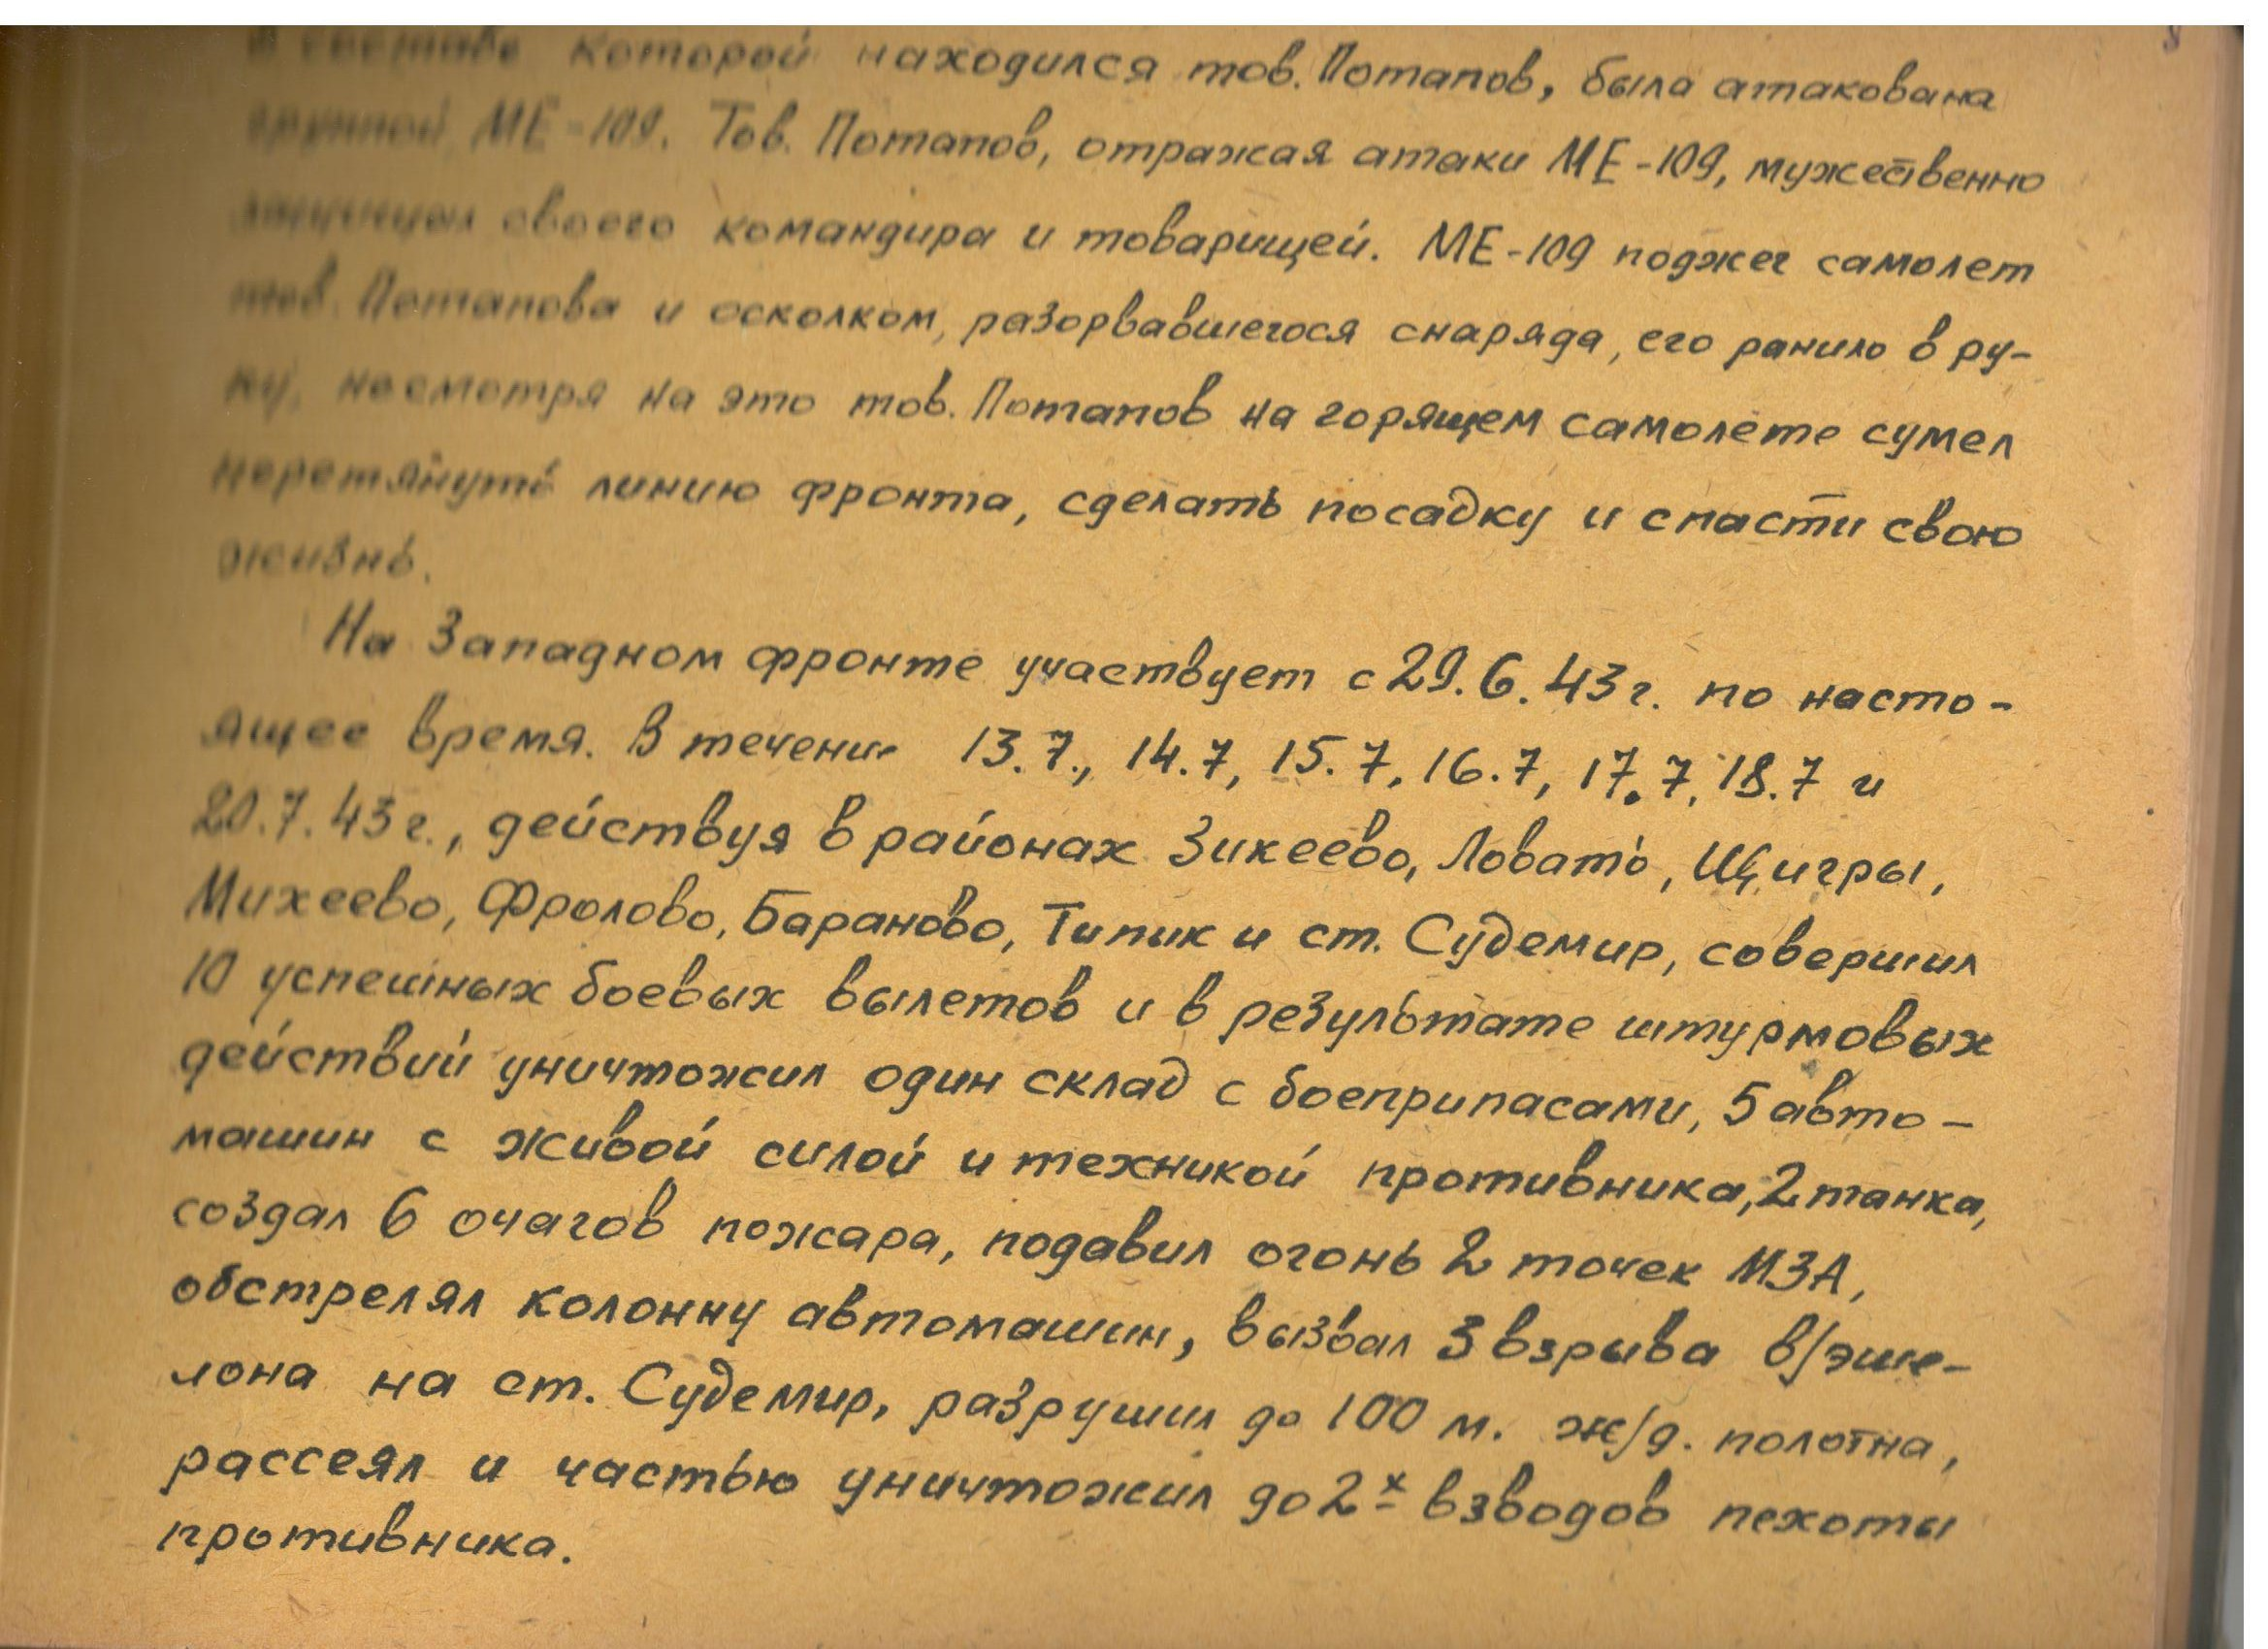 в составе которой находился тов. Потапов, была атакована
группой МЕ-109. Тов. Потапов, отражая атаки МЕ-109, мужественно
защищал своего командира и товарищей. МЕ-109 поджег самолет
тов. Потапова и осколком, разорвавшегося снаряда, его ранило в ру-
ку, несмотря на это тов. Потапов на горящем самолете сумел
перетянуть линию фронта, сделать посадку и спасти свою
жизнь.
На Западном фронте участвует с 29.6.43 г. по насто-
ящее время. В течение 13.7., 14.7, 15.7, 16.7, 17.7, 18.7 и
20.7.43 г., действуя в районах Зикеево, Ловать, Щигры,
Михеево, Фролово, Бараново, Типик и ст. Судемир, совершил
10 успешных боевых вылетов и в результате штурмовых
действий уничтожил один склад с боеприпасами, 5 авто-
машин с живой силой и техникой противника, 2 танка,
создал 6 очагов пожара, подавил огонь 2 точек МЗА,
обстрелял колонну автомашин, вызвал 3 взрыва в/эше-
лона на ст. Судемир, разрушил до 100 м. ж/д. полотна,
рассеял и частью уничтожил до 2х взводов пехоты
противника.